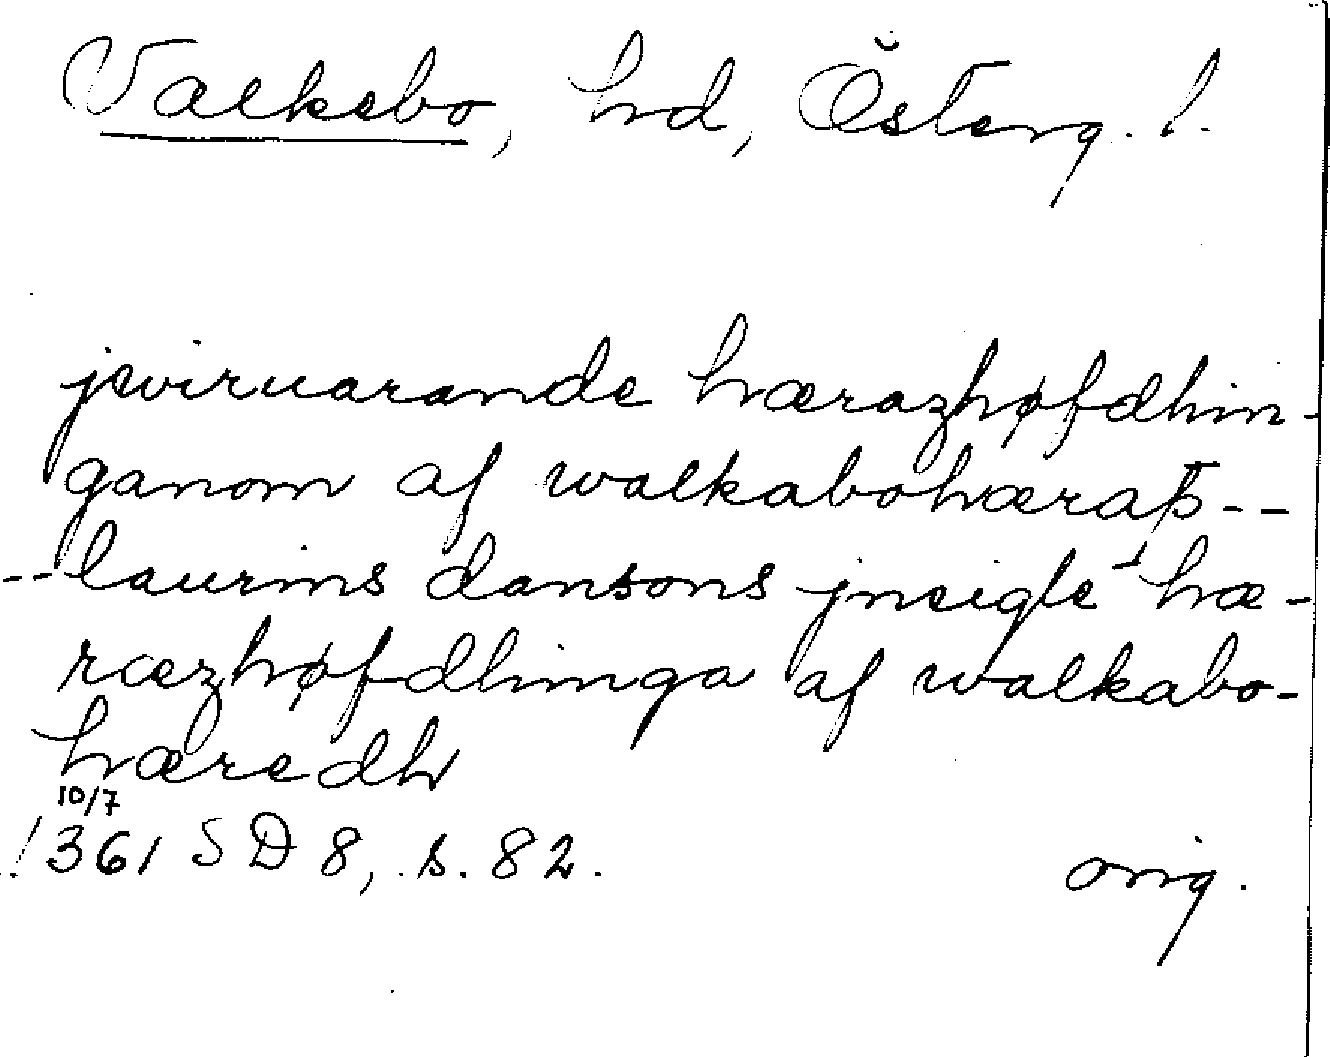 Valkebo, hd, Österg. l.
jwiruarande hærazhøfdhin-
ganom af walkabohæraþ--
--laurins dansons jnsigle hæ-
ræzhøfdhinga af walkabo-
hæredh
10/7
1361 SD 8, s. 82. orig.